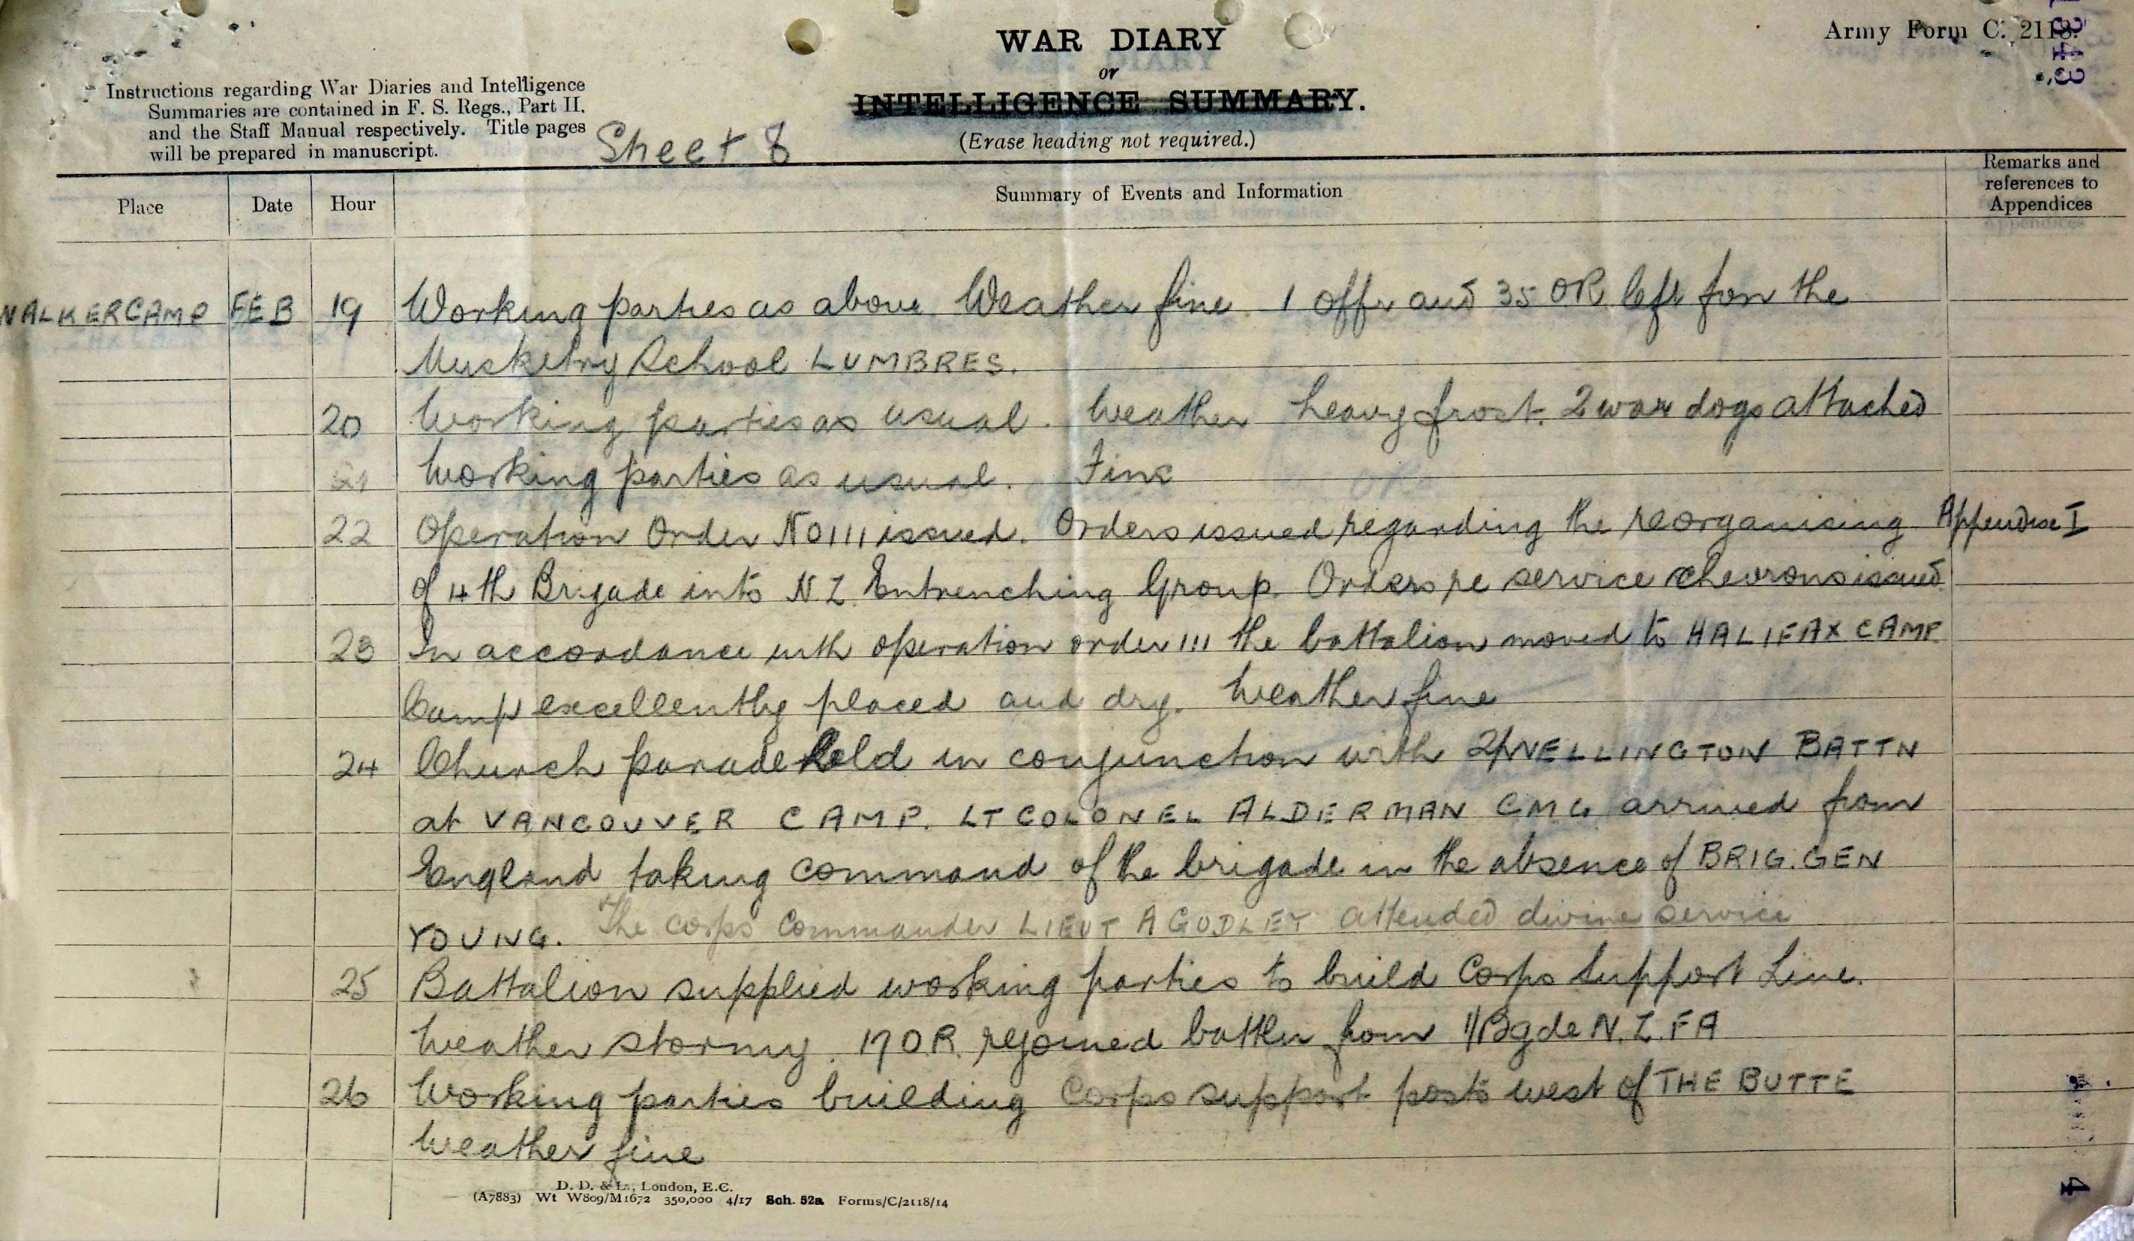 WAR DIARY
or
INTELLIGENCE SUMMARY.
(Erase heading not required.)
Army Form C. 2118.
Instructions regarding War Diaries and Intelligence
Summaries are contained in F. S. Regs., Part II.
and the Staff Manual respectively. Title pages
will be prepared in manuscript.
Sheet 8
Place Date Hour Summary of Events and Information Remarks and references to Appendices
WALKER CAMP FEB 19 Working parties as above Weather fine. 1 offr and 35 OR left for the
Musketry School LUMBRES.
20 Working parties as usual. Weather heavy frost. 2 war dogs attached
21 Working parties as usual. Fine
22 Operation Order No 111 issued. Orders issued regarding the reorganising Appendix I
of 4th Brigade into NZ Entrenching Group. Orders re service chevrons issued
23 In accordance with operation order 111 the battalion moved to HALIFAX CAMP
Camp excellently placed and dry. Weather fine
24 Church parade held in conjunction with 2/WELLINGTON BATTN
at VANCOUVER CAMP. LT COLONEL ALDERMAN CMG arrived from
England taking command of the brigade in the absence of BRIG. GEN
YOUNG. The corps commander LIEUT A GODLEY attended divine service
25 Battalion supplied working parties to build Corps Support Line.
Weather stormy. 17 O.R. rejoined battn from 1/Bgde N.Z. FA
26 Working parties building Corps support posts west of THE BUTTE
Weather fine
D. D. & L., London, E.C.
(A7883) Wt W809/M1672 350,000 4/17 Sch. 52a Forms/C/2118/14